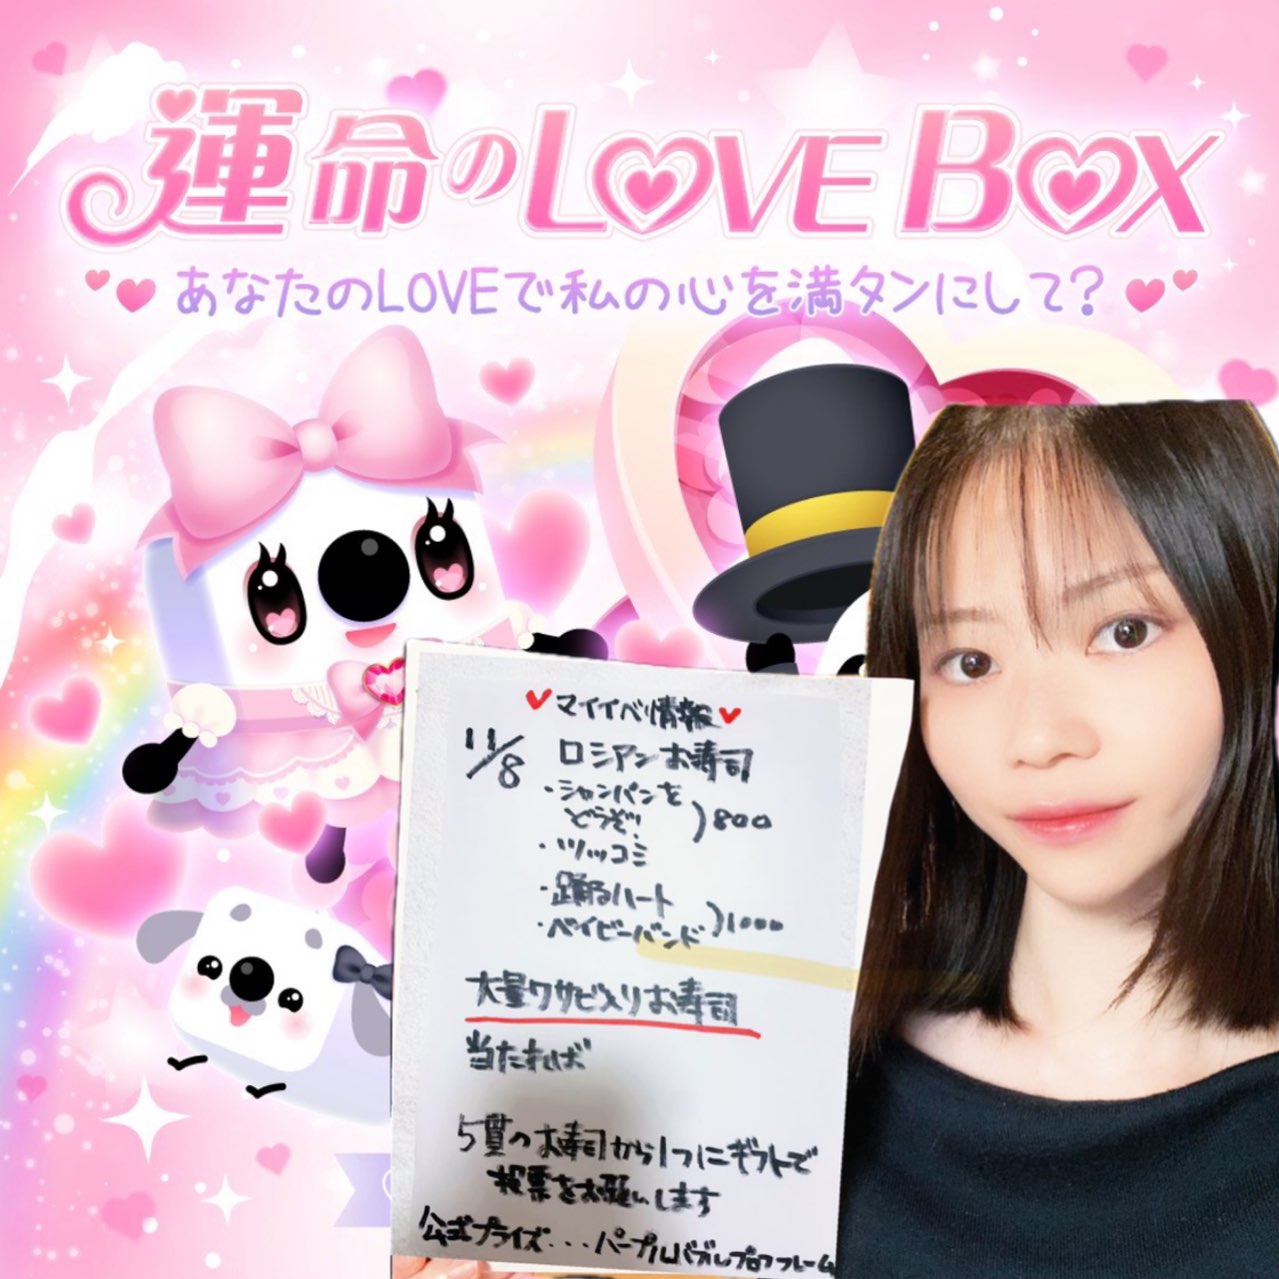 運命のLOVE BOX
あなたのLOVEで私の心を満タンにして?
マイイベ情報
11/8
ロシアンお寿司
・シャンパンを
どうぞ! )800
・ツッコミ
・踊るハート
・ベイビーバンド )1000
大量ワサビ入りお寿司
当たれば
5貫のお寿司から1つにギフトで
投票をお願いします
公式プライズ...パープルバブルプロフフレーム